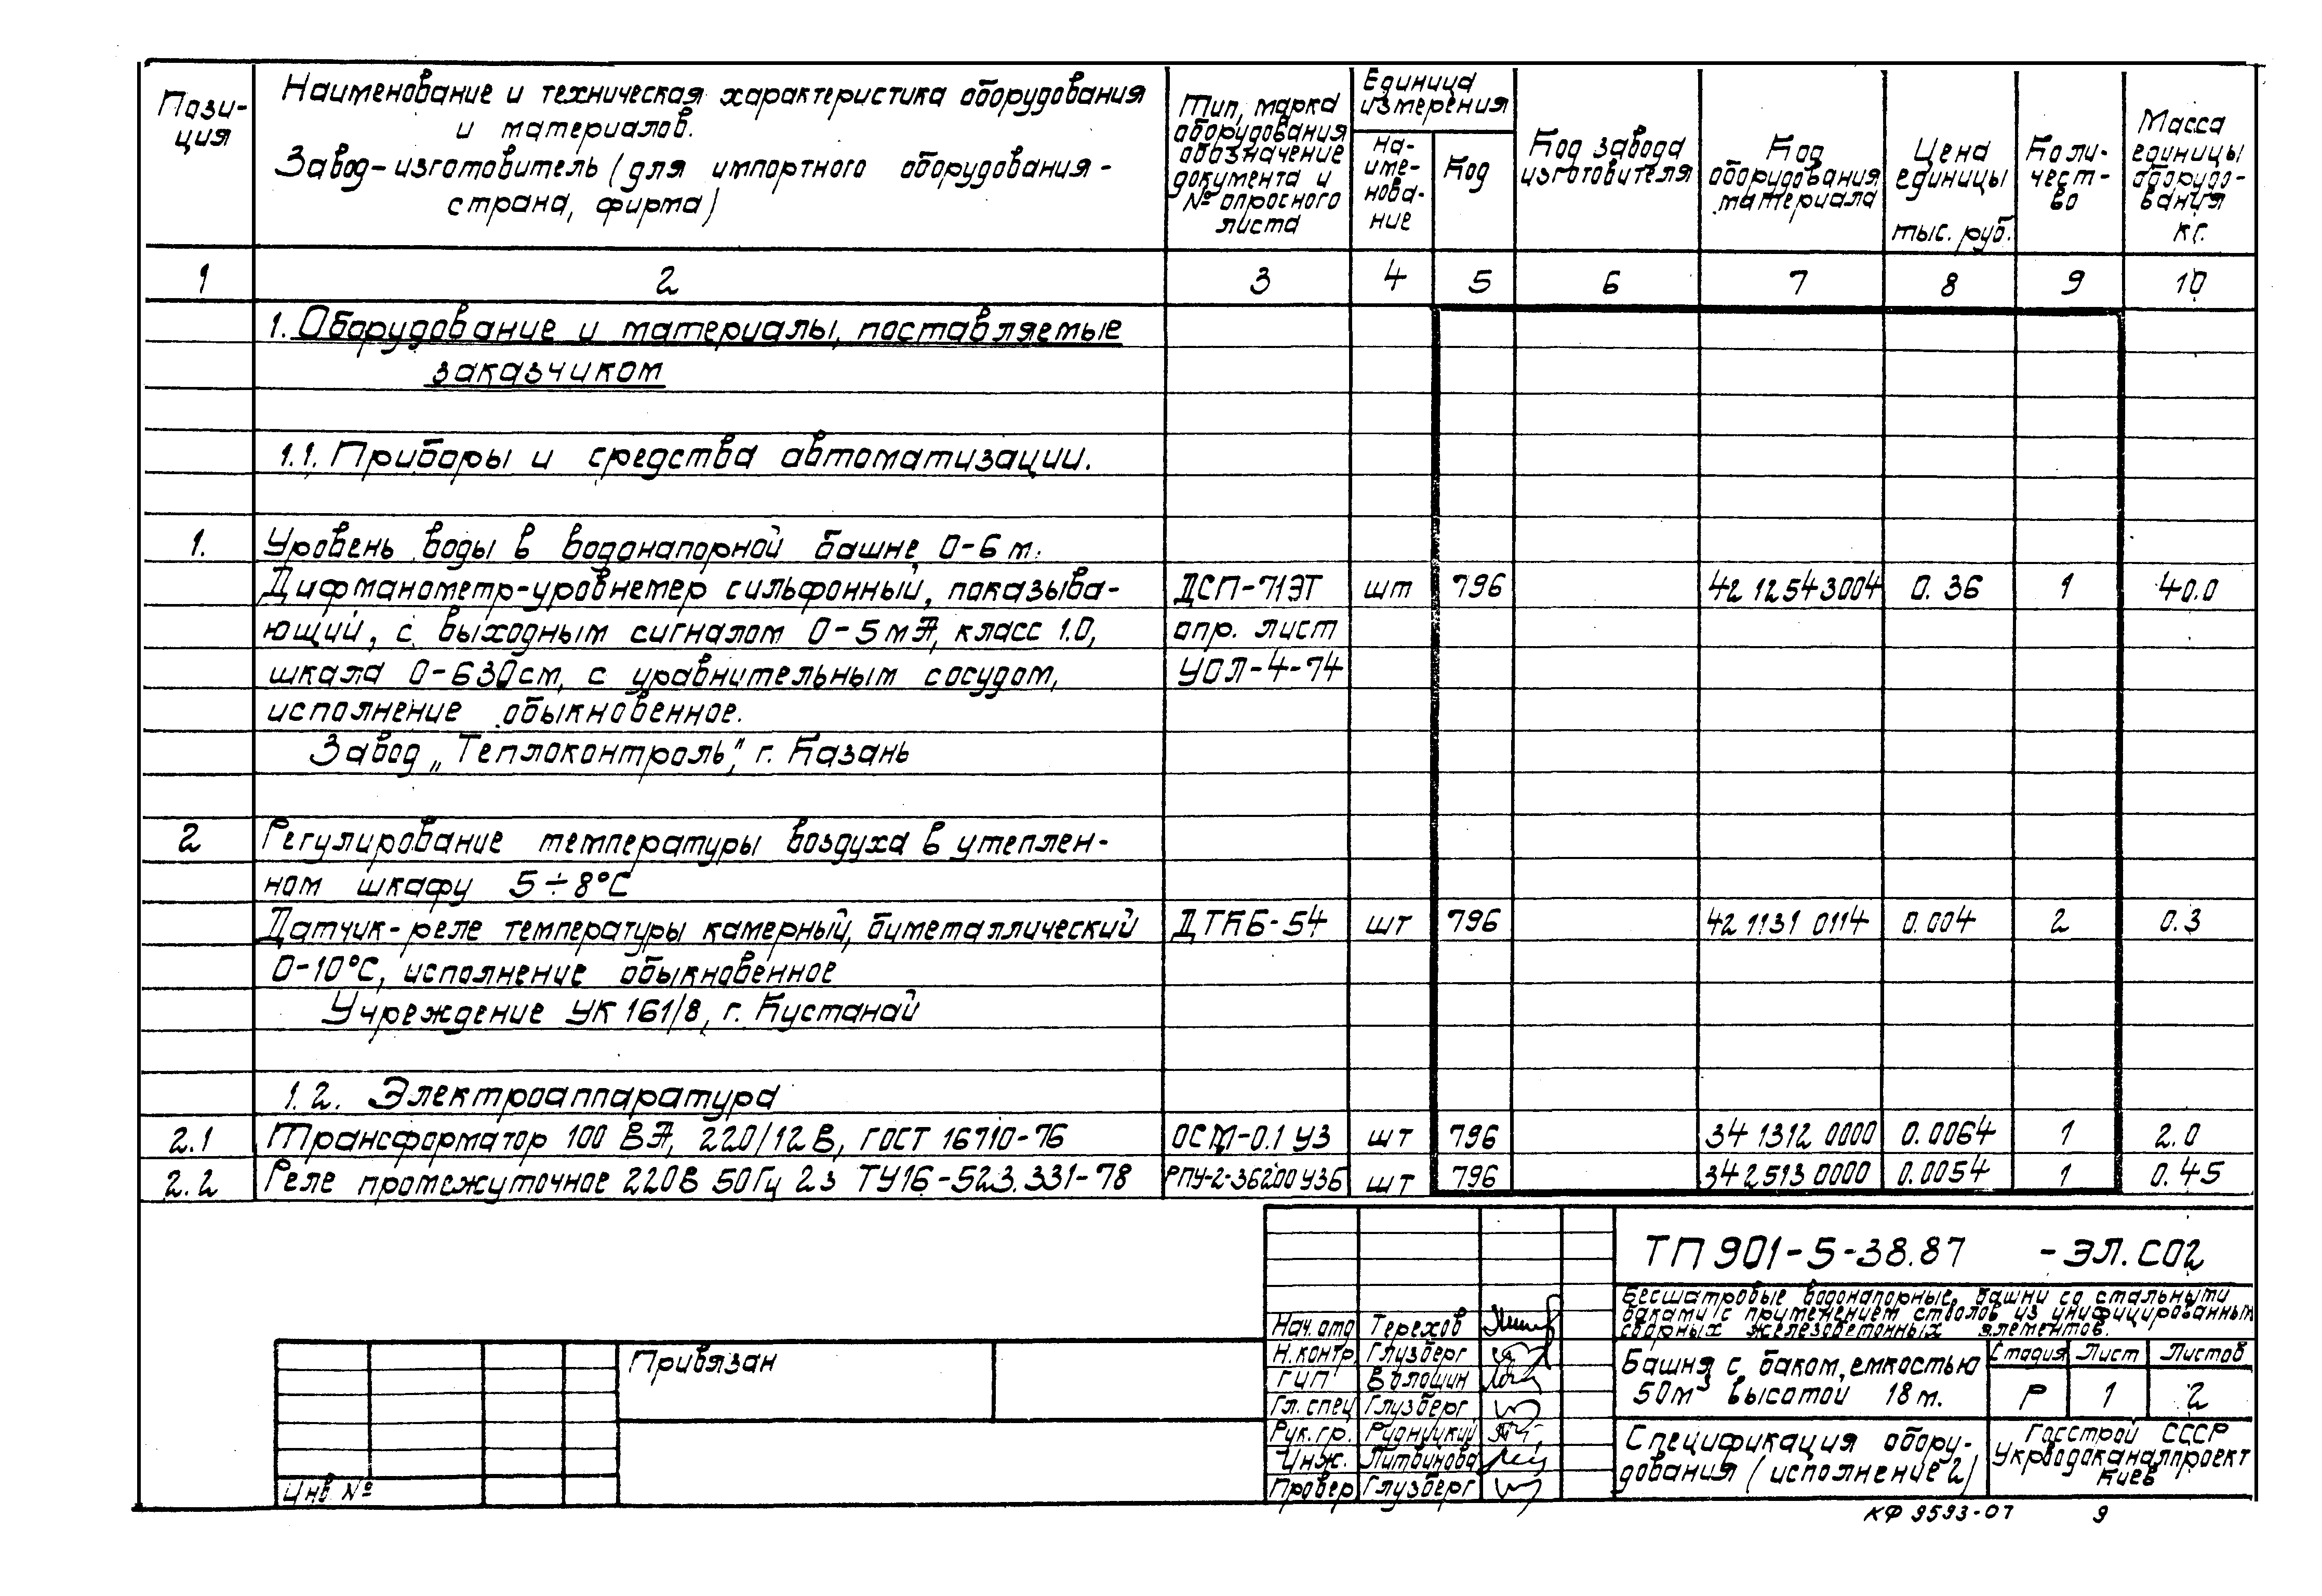 Пози-
ция
Наименование и техническая характеристика оборудования
и материалов.
Завод-изготовитель (для импортного оборудования -
страна, фирма)
Тип, марка
оборудования
обозначение
документа и
№ опросного
листа
Единица
измерения
На-
име-
нова-
ние
Код
Код завода
изготовителя
Код
оборудования
материала
Цена
единицы
тыс. руб.
Коли-
чест-
во
Масса
единицы
оборудо-
вания
кг.
1 2 3 4 5 6 7 8 9 10
1. Оборудование и материалы, поставляемые
заказчиком
1.1. Приборы и средства автоматизации.
1. Уровень воды в водонапорной башне 0-6 м.
Дифманометр-уровнемер сильфонный, показыва- ДСП-71ЭТ шт 796 42 12543004 0.36 1 40.0
ющий, с выходным сигналом 0-5мА, класс 1.0, опр. лист
шкала 0-630см, с уравнительным сосудом, УОЛ-4-74
исполнение обыкновенное.
Завод „Теплоконтроль", г. Казань
2 Регулирование температуры воздуха в утеплен-
ном шкафу 5÷8°С
Датчик-реле температуры камерный, биметаллический ДТКБ-54 шт 796 42 1131 0114 0.004 2 0.3
0-10°С, исполнение обыкновенное
Учреждение УК 161/8, г. Кустанай
1.2. Электроаппаратура
2.1 Трансформатор 100 ВА, 220/12В, ГОСТ 16710-76 ОСМ-0.1 У3 шт 796 34 1312 0000 0.0064 1 2.0
2.2 Реле промежуточное 220В 50Гц 2з ТУ16-523.331-78 РПУ-2-36200У3Б шт 796 342513 0000 0.0054 1 0.45
ТП 901-5-38.87 -ЭЛ.СО2
Бесшатровые водонапорные башни со стальными
баками с применением стволов из унифицированных
сборных железобетонных элементов.
Нач. отд Терехов
Н.контр. Глузберг
ГИП Волошин
Гл. спец Глузберг
Рук. гр. Рудницкий
Инж. Литвинова
Провер Глузберг
Башня с баком, емкостью
50м³ высотой 18 м.
Стадия Лист Листов
Р 1 2
Спецификация обору-
дования (исполнение 2)
Госстрой СССР
Укрводоканалпроект
Киев
Привязан
Инв №
КФ 9593-07 9